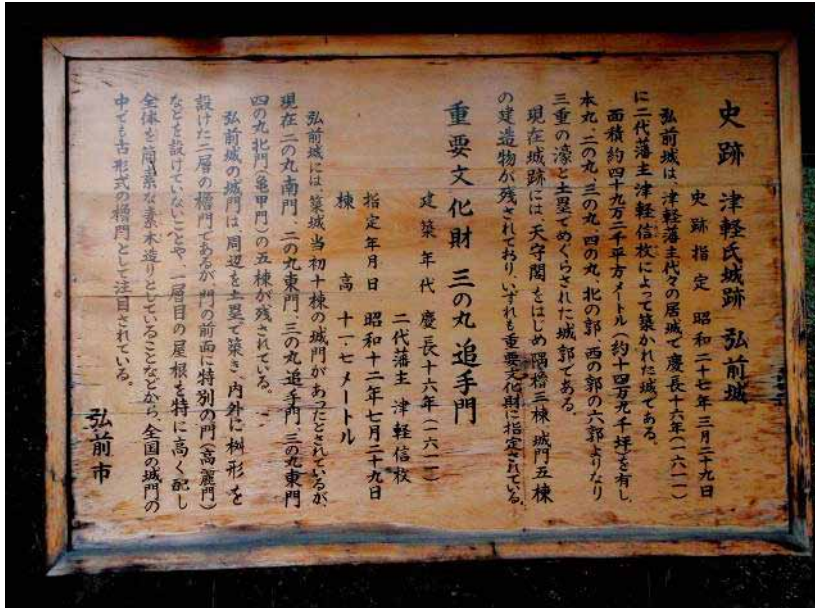 史跡 津軽氏城跡 弘前城
史跡指定 昭和二十七年三月二十九日
弘前城は、津軽藩主代々の居城で慶長十六年(一六一一)
に二代藩主津軽信枚によって築かれた城である。
面積約四十九万二千平方メートル(約十四万九千坪)を有し、
本丸、二の丸、三の丸、四の丸、北の郭、西の郭の六郭よりなり
三重の濠と土塁でめぐらされた城郭である。
現在城跡には、天守閣をはじめ隅櫓三棟、城門五棟
の建造物が残されており、いずれも重要文化財に指定されている。
重要文化財 三の丸 追手門
建築年代 慶長十六年(一六一一)
二代藩主 津軽信枚
指定年月日 昭和十二年七月二十九日
棟高 十一・七メートル
弘前城には、築城当初十棟の城門があったとされているが、
現在、二の丸南門、二の丸東門、三の丸追手門、三の丸東門
四の丸北門(亀甲門)の五棟が残されている。
弘前城の城門は、周辺を土塁で築き、内外に桝形を
設けた二層の櫓門であるが、門の前面に特別の門(高麗門)
などを設けていないことや、一層目の屋根を特に高く配し
全体を簡素な素木造りとしていることなどから、全国の城門の
中でも古形式の櫓門として注目されている。
弘前市